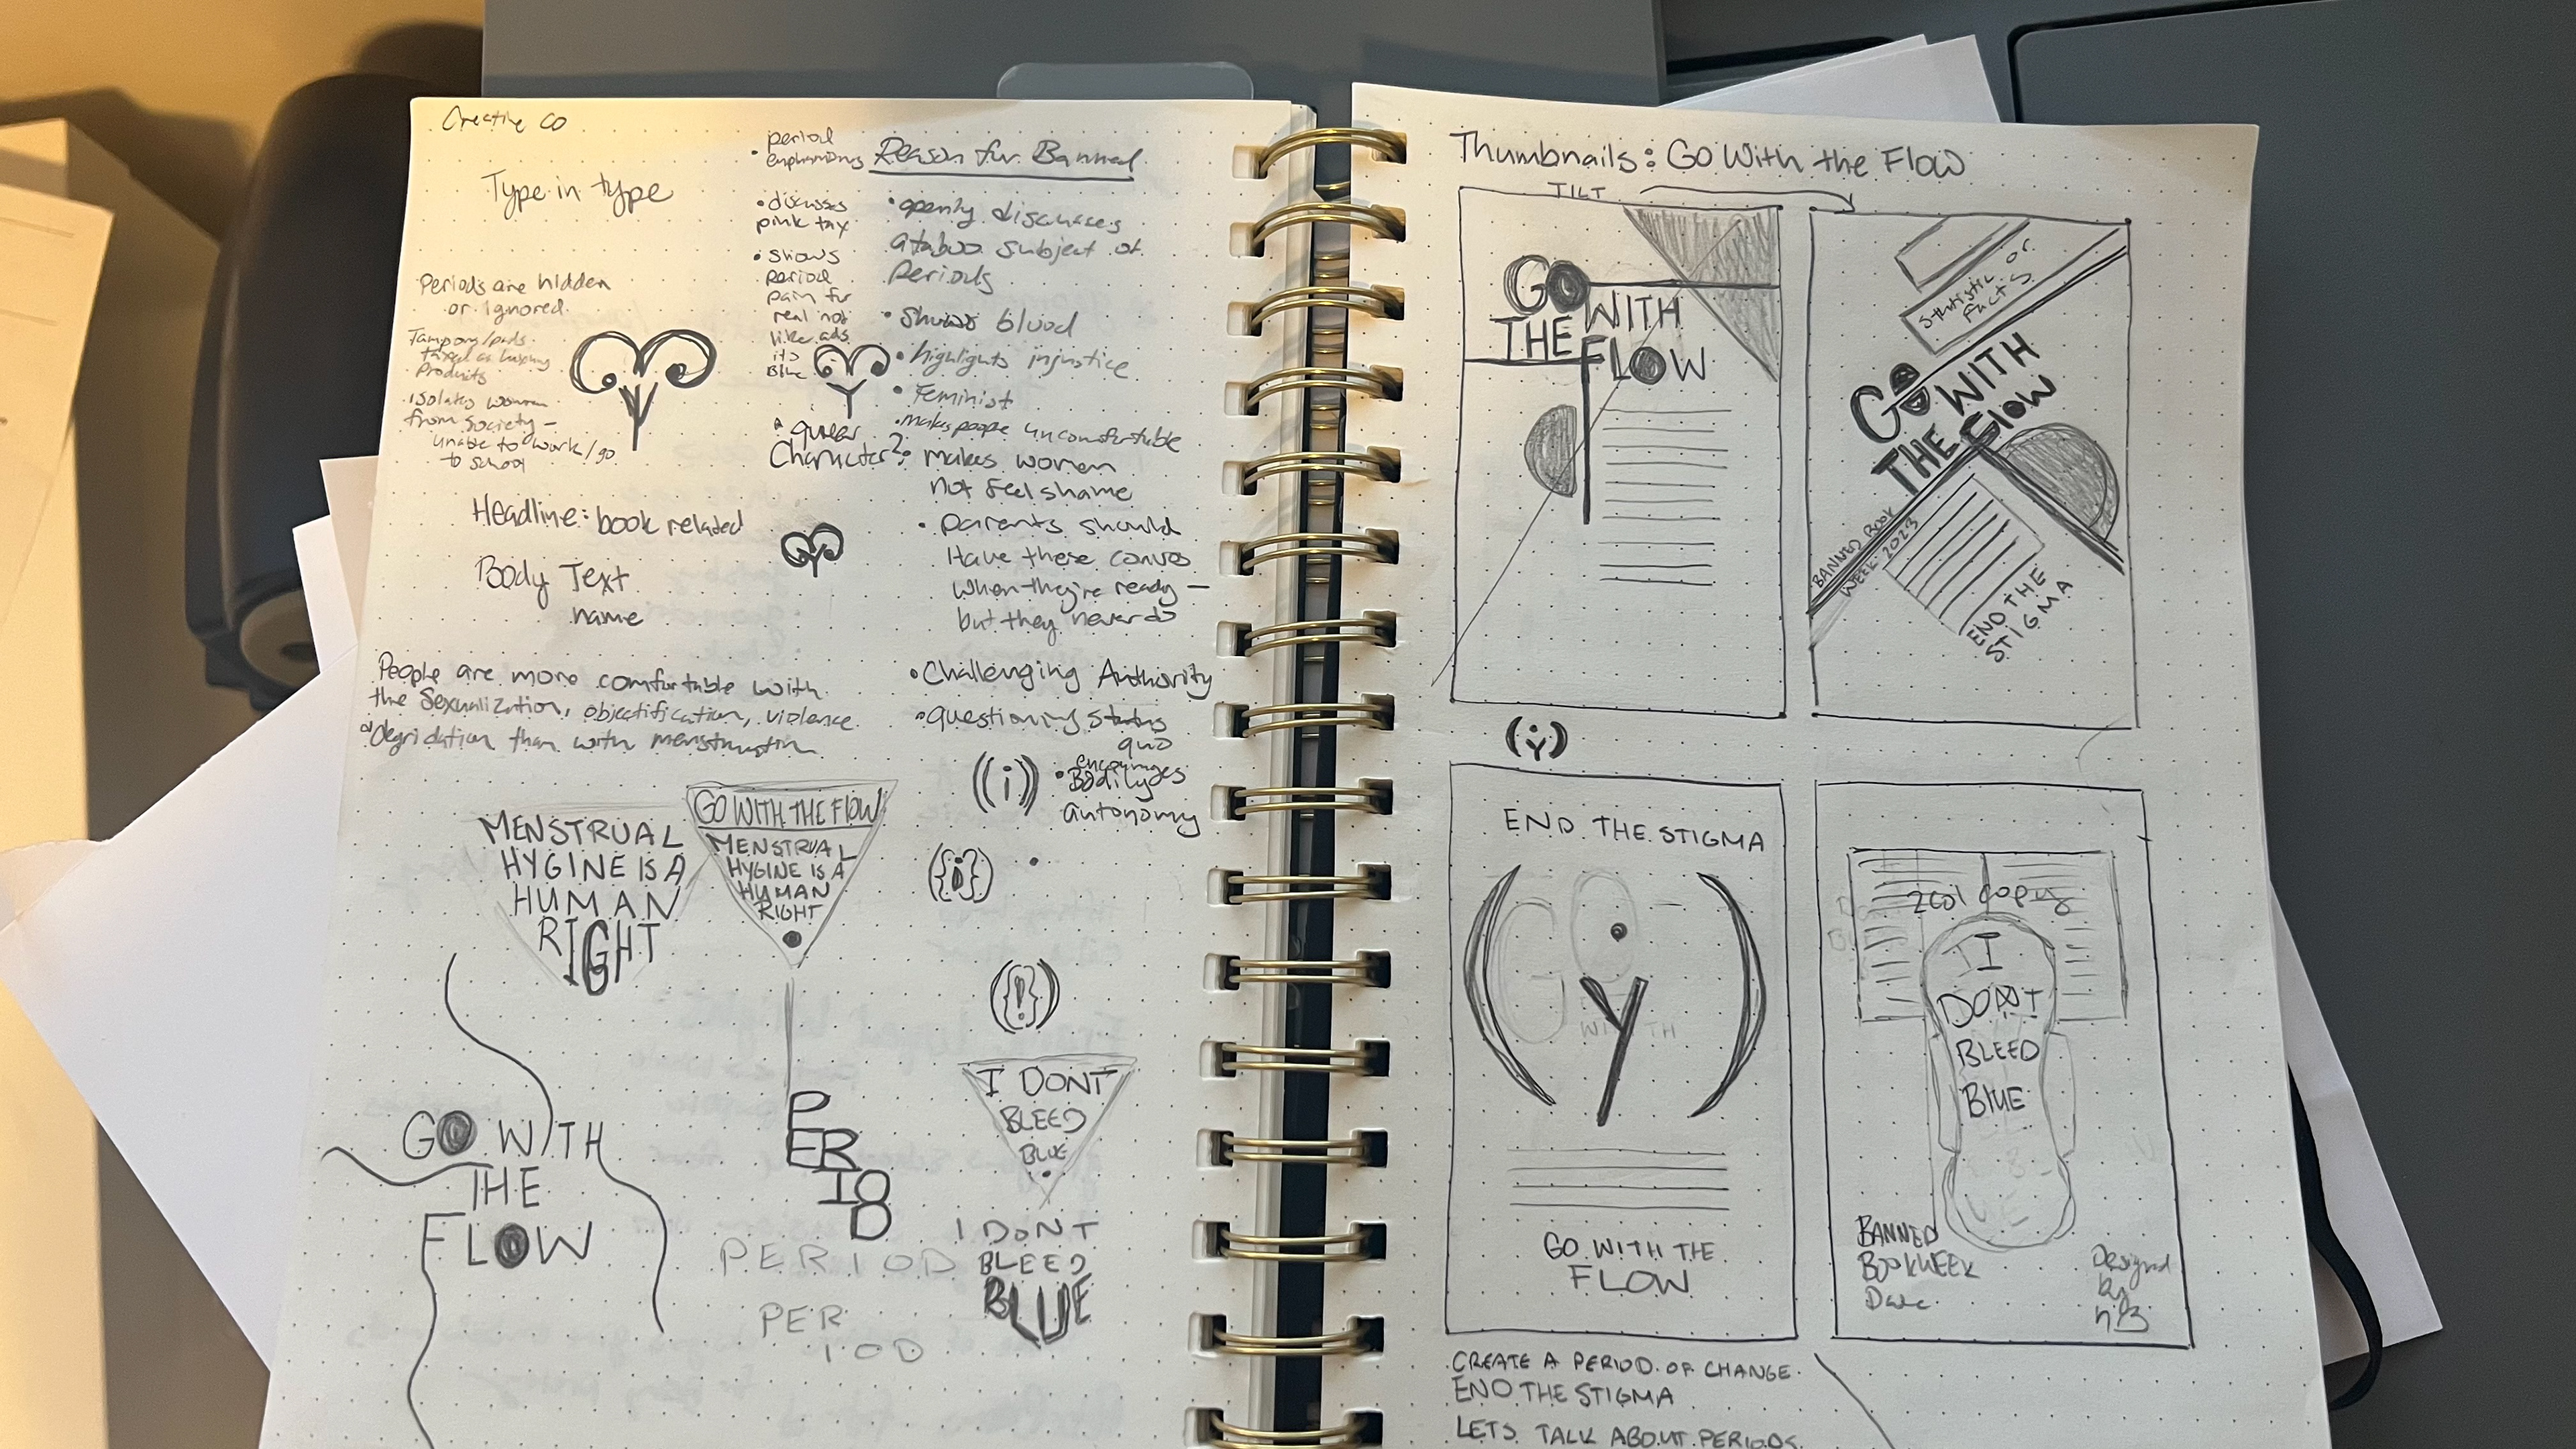 Creative Co
Type in type
Periods are hidden
or ignored.
Tampons/pads
taxed as luxury
Products
isolates women
from society –
unable to work/go
to school
Headline: book related
Body Text
name
People are more comfortable with
the sexualization, objectification, violence
& degridation than with menstruation
• period
euphamisms
• discusses
pink tax
• Shows
period
pain for
real not
like ads
its
Blue
a queer
Character?
Reason for Banned
• openly discusses
a taboo subject of
Periods
• Shows blood
• highlights injustice
• Feminist
• makes people uncomfortable
• makes women
not feel shame
• parents should
Have these convos
when they're ready –
but they never do
• Challenging Authority
• questioning status
quo
• encourages
Bodily
autonomy
MENSTRUAL
HYGINE IS A
HUMAN
RIGHT
GO WITH THE FLOW
MENSTRUAL
HYGINE IS A
HUMAN
RIGHT
((i))
({i})
({!})
GO WITH
THE
FLOW
P
ER
IO
D
PERIOD
PER
IOD
I DONT
BLEED
BLUE
I DONT
BLEED
BLUE
Thumbnails: Go With the Flow
TILT
GO
WITH
THE
FLOW
Statistic or
facts
GO WITH
THE FLOW
BANNED BOOK
WEEK 2023
END THE
STIGMA
END THE STIGMA
G O
Y
WITH
GO WITH THE
FLOW
2 col copy
I
DON'T
BLEED
BLUE
BANNED
BOOKWEEK
Date
Designed
by
CREATE A PERIOD OF CHANGE.
END THE STIGMA
LETS TALK ABOUT PERIODS.